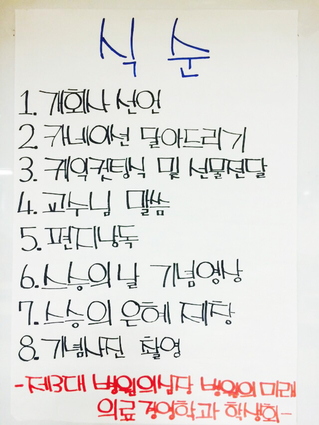 식 순
1. 개회사 선언
2. 카네이션 달아드리기
3. 케익컷팅식 및 선물전달
4. 교수님 말씀
5. 편지낭독
6. 스승의 날 기념영상
7. 스승의 은혜 제창
8. 기념사진 촬영
-제3대 병원의심장 병원의 미래
의료경영학과 학생회-